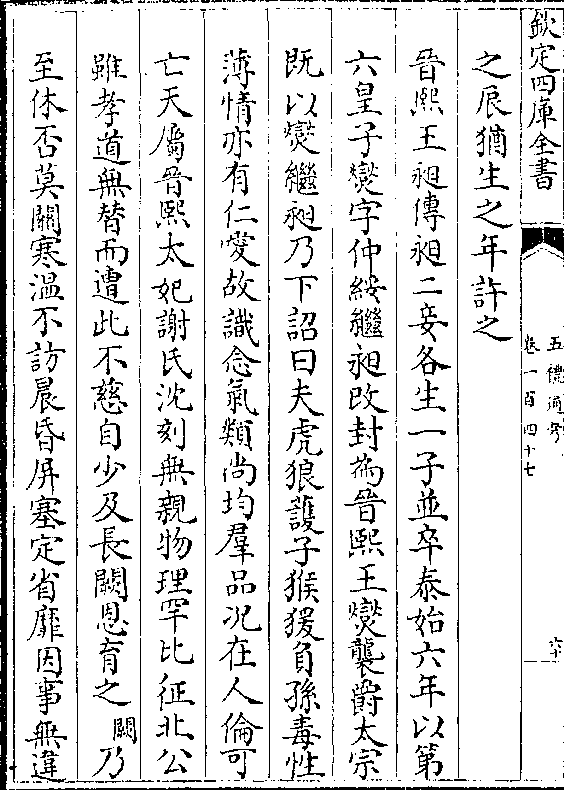 欽定四庫全書
五禮通考
卷一百四十七
六十
之辰猶生之年許之
晉熙王昶傳昶二妾各生一子並卒泰始六年以第
六皇子燮字仲綏繼昶改封為晉熙王燮襲爵太宗
既以燮繼昶乃下詔曰夫虎狼護子猴猨負孫毒性
薄情亦有仁愛故識念氣類尚均羣品況在人倫可
亡天屬晉熙太妃謝氏沈刻無親物理罕比征北公
雖孝道無替而遭此不慈自少及長闕恩育之闕乃
至休否莫關寒溫不訪晨昏屏塞定省靡因事無違